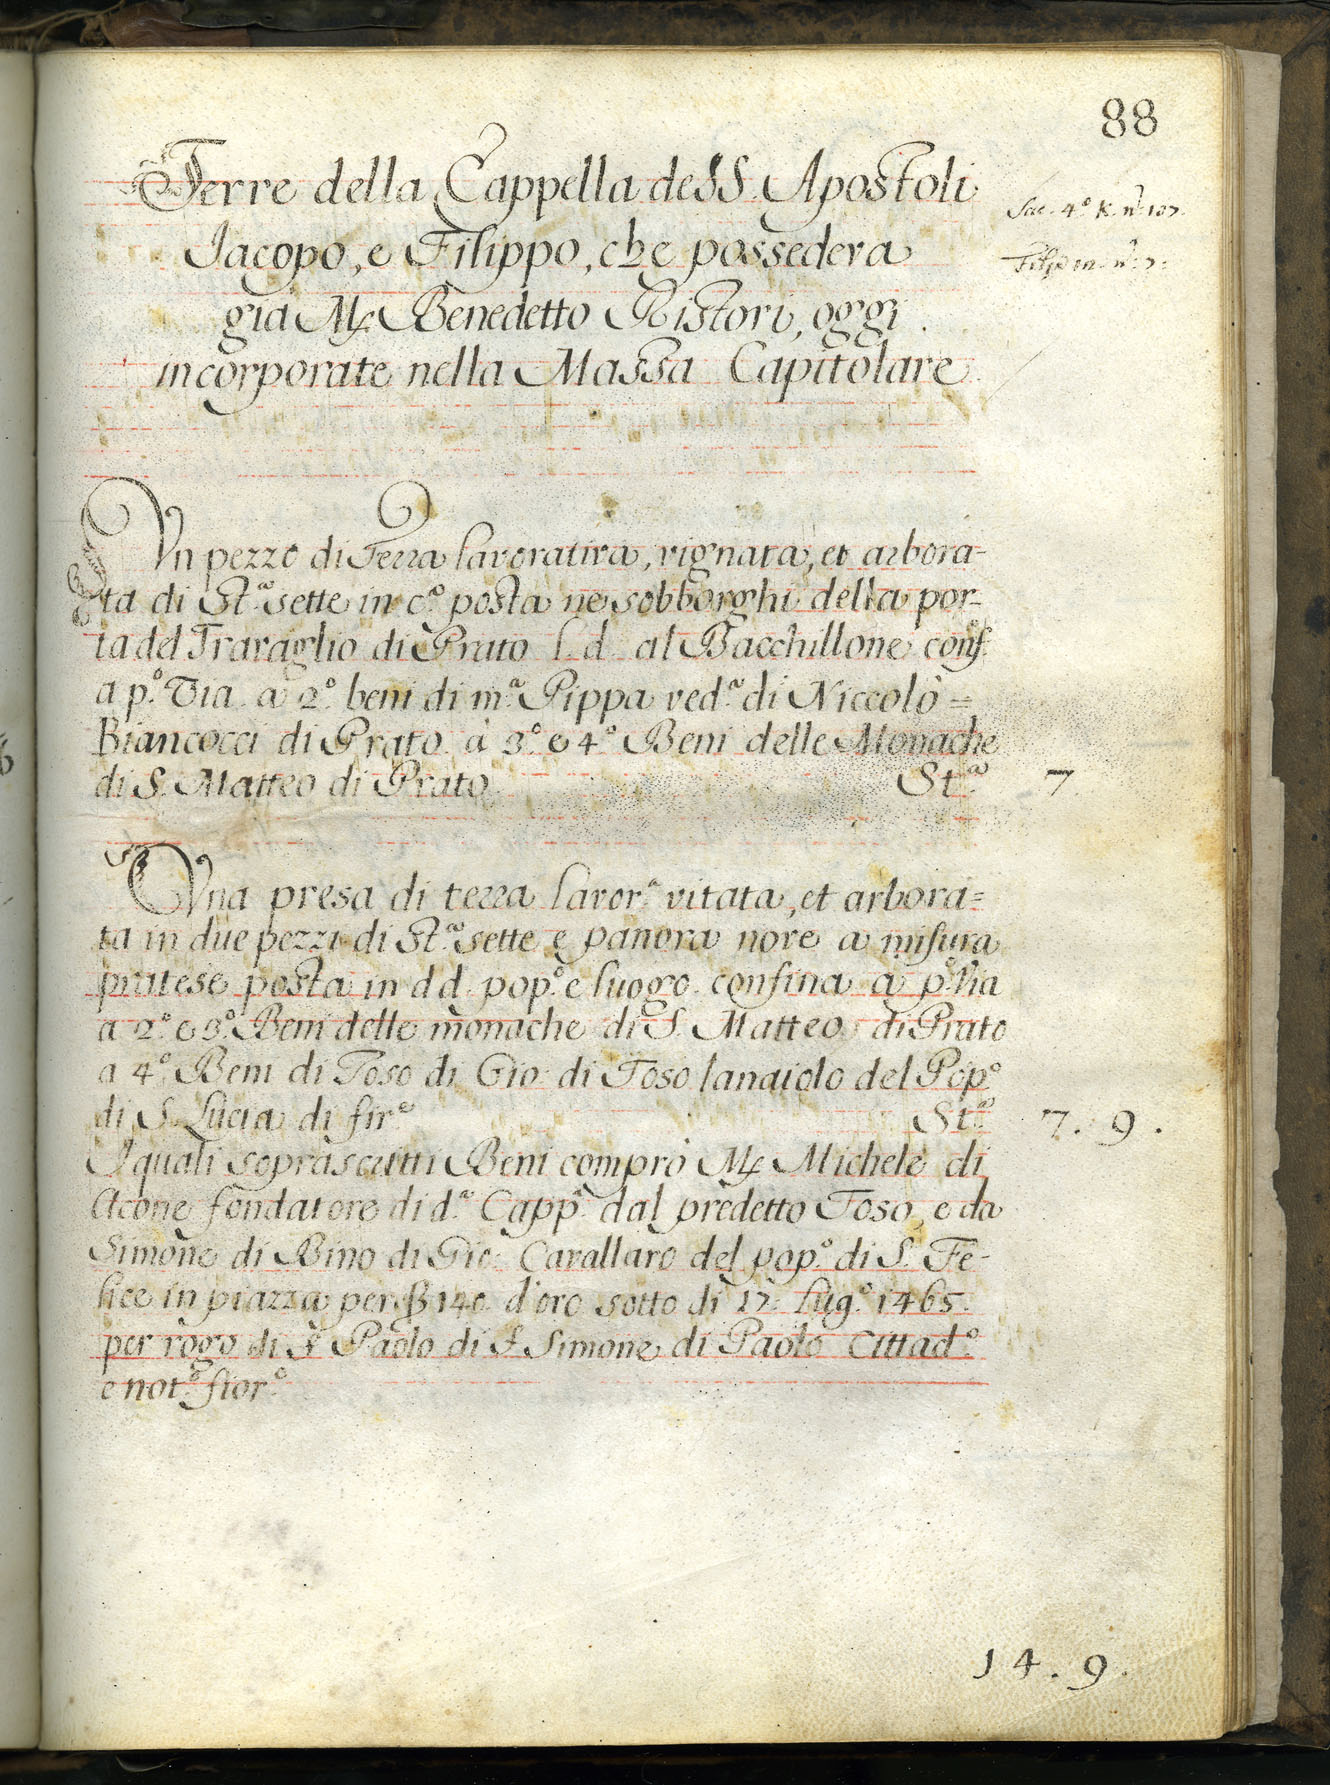 88
Terre della Cappella de SS. Apostoli
Jacopo, e Filippo, che possedeva
già M.r Benedetto Ristori, oggi
incorporate nella Massa Capitolare
Sac. 4.º K. nº. 107.
Vn pezzo di Terra lavorativa, vignata, et arbora-
ta di St.ª sette in c.ª posta ne sobborghi della por-
ta del Travaglio di Prato l. d. al Bacchillone conf.
a p.º Via. a 2.º beni di m.ª Pippa ved.ª di Niccolò =
Biancocci di Prato. à 3.º e 4.º Beni delle Monache
di S. Matteo di Prato St.ª 7
Vna presa di terra lavor.ª vitata, et arbora=
ta in due pezzi di St.ª sette e panora nove a misura
pratese posta in d.d. pop.º e luogo. confina a p.º Via
a 2.º e 3.º Beni delle monache di S. Matteo di Prato
a 4.º Beni di Toso di Gio: di Toso lanaiolo del Pop.º
di S. Lucia di fir.e St.ª 7. 9.
I quali soprascritti Beni comprò M.r Michele di
Acone fondatore di d.ª Capp.ª dal predetto Toso, e da
Simone di Bino di Gio: Cavallaro del pop.º di S. Fe-
lice in piazza per ƒ 140 d'oro sotto di 17. lug.º 1465.
per rogo di S. Paolo di S. Simone di Paolo Cittad.º
e not.º fior.º
14. 9.